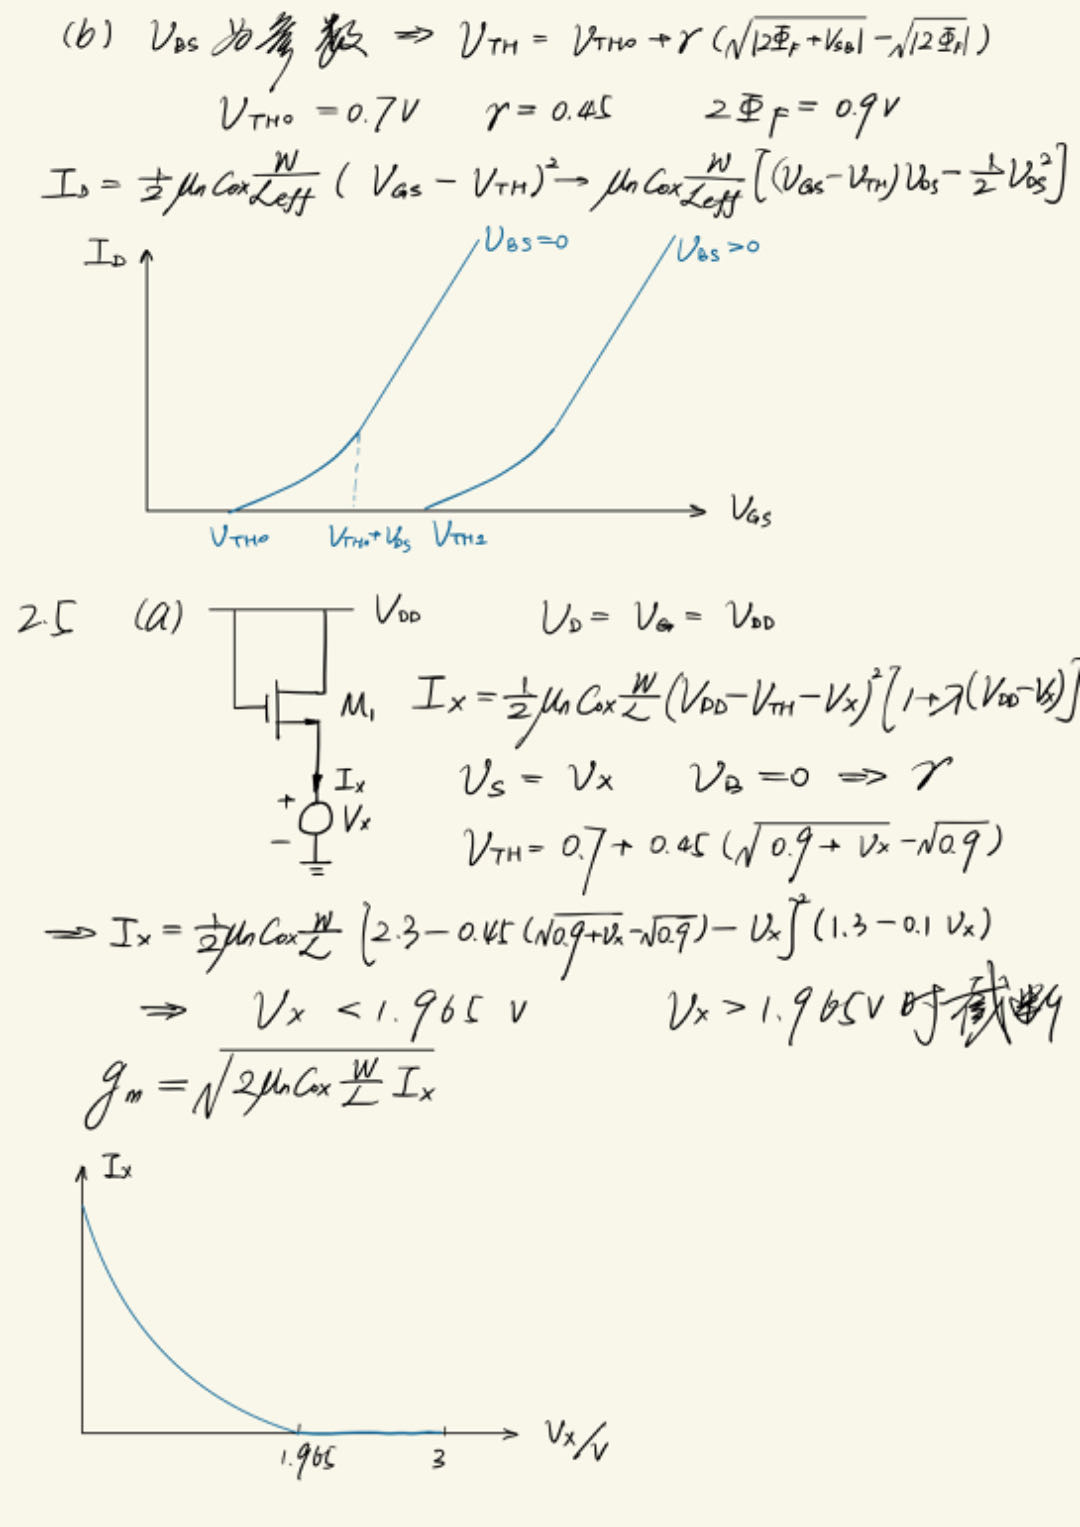 (b) V_BS 为参数 ⇒ V_TH = V_TH0 + γ(√|2Φ_F + V_SB| − √|2Φ_F|)
V_TH0 = 0.7V γ = 0.45 2Φ_F = 0.9V
I_D = ½ μn Cox W/Leff (V_GS − V_TH)² → μn Cox W/Leff [(V_GS − V_TH) V_DS − ½ V_DS²]
I_D V_BS=0 V_BS>0
V_GS
V_TH0 V_TH0+V_DS V_TH2
2.5 (a) V_DD V_D = V_G = V_DD
M_1 I_X = ½ μn Cox W/L (V_DD − V_TH − V_X)² [1+λ(V_DD−V_X)]
I_X V_S = V_X V_B = 0 ⇒ γ
+ V_X −
V_TH = 0.7 + 0.45 (√0.9 + V_X − √0.9)
⇒ I_X = ½ μn Cox W/L [2.3 − 0.45 (√0.9+V_X − √0.9) − V_X]² (1.3 − 0.1 V_X)
⇒ V_X < 1.965 V V_X > 1.965V 时截断
g_m = √2μn Cox W/L I_X
I_X
V_X/V
1.965 3